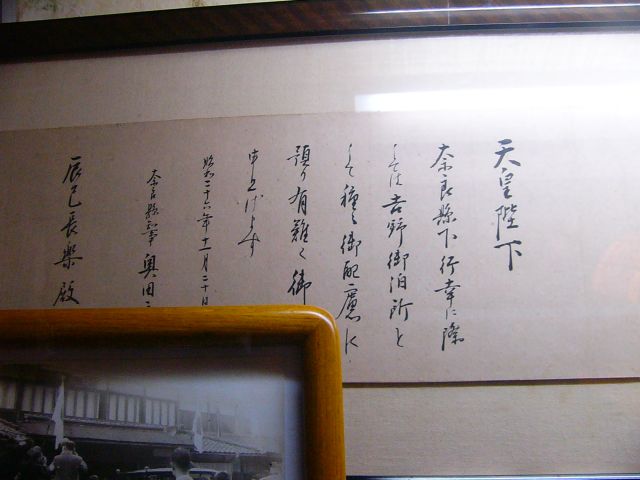 天皇陛下
奈良縣下行幸に際
しては吉野御泊所と
して種々御配慮に
預り有難く御
申上げます
昭和二十六年十一月二十日
奈良縣知事 奥田
辰巳長樂殿